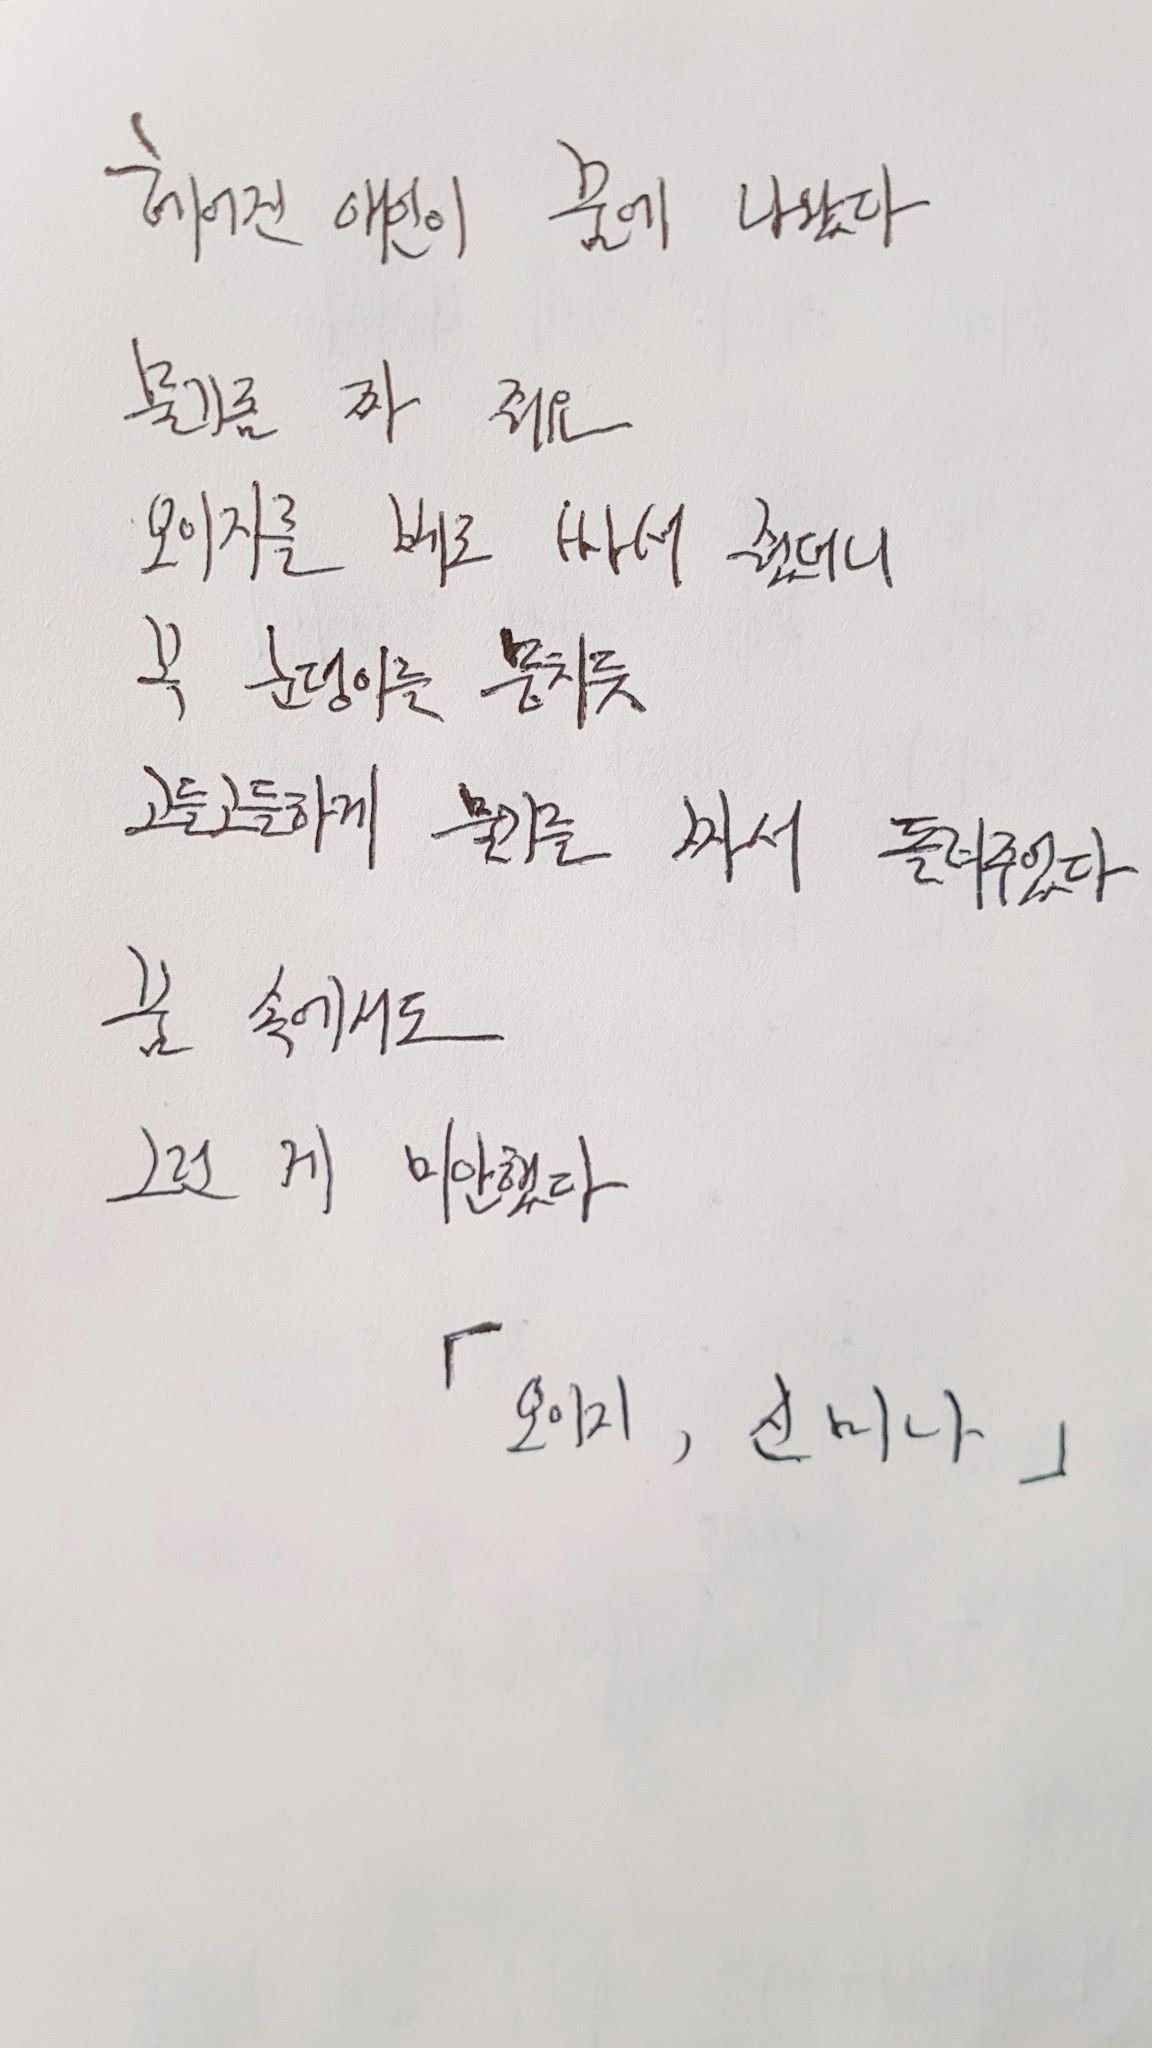 헤어진 애인이 꿈에 나왔다
물기좀 짜 줘요
오이지를 베로 싸서 줬더니
꼭 눈덩이를 뭉치듯
고들고들하게 물기를 짜서 돌려주었다
꿈 속에서도
그런 게 미안했다
「오이지, 신미나」